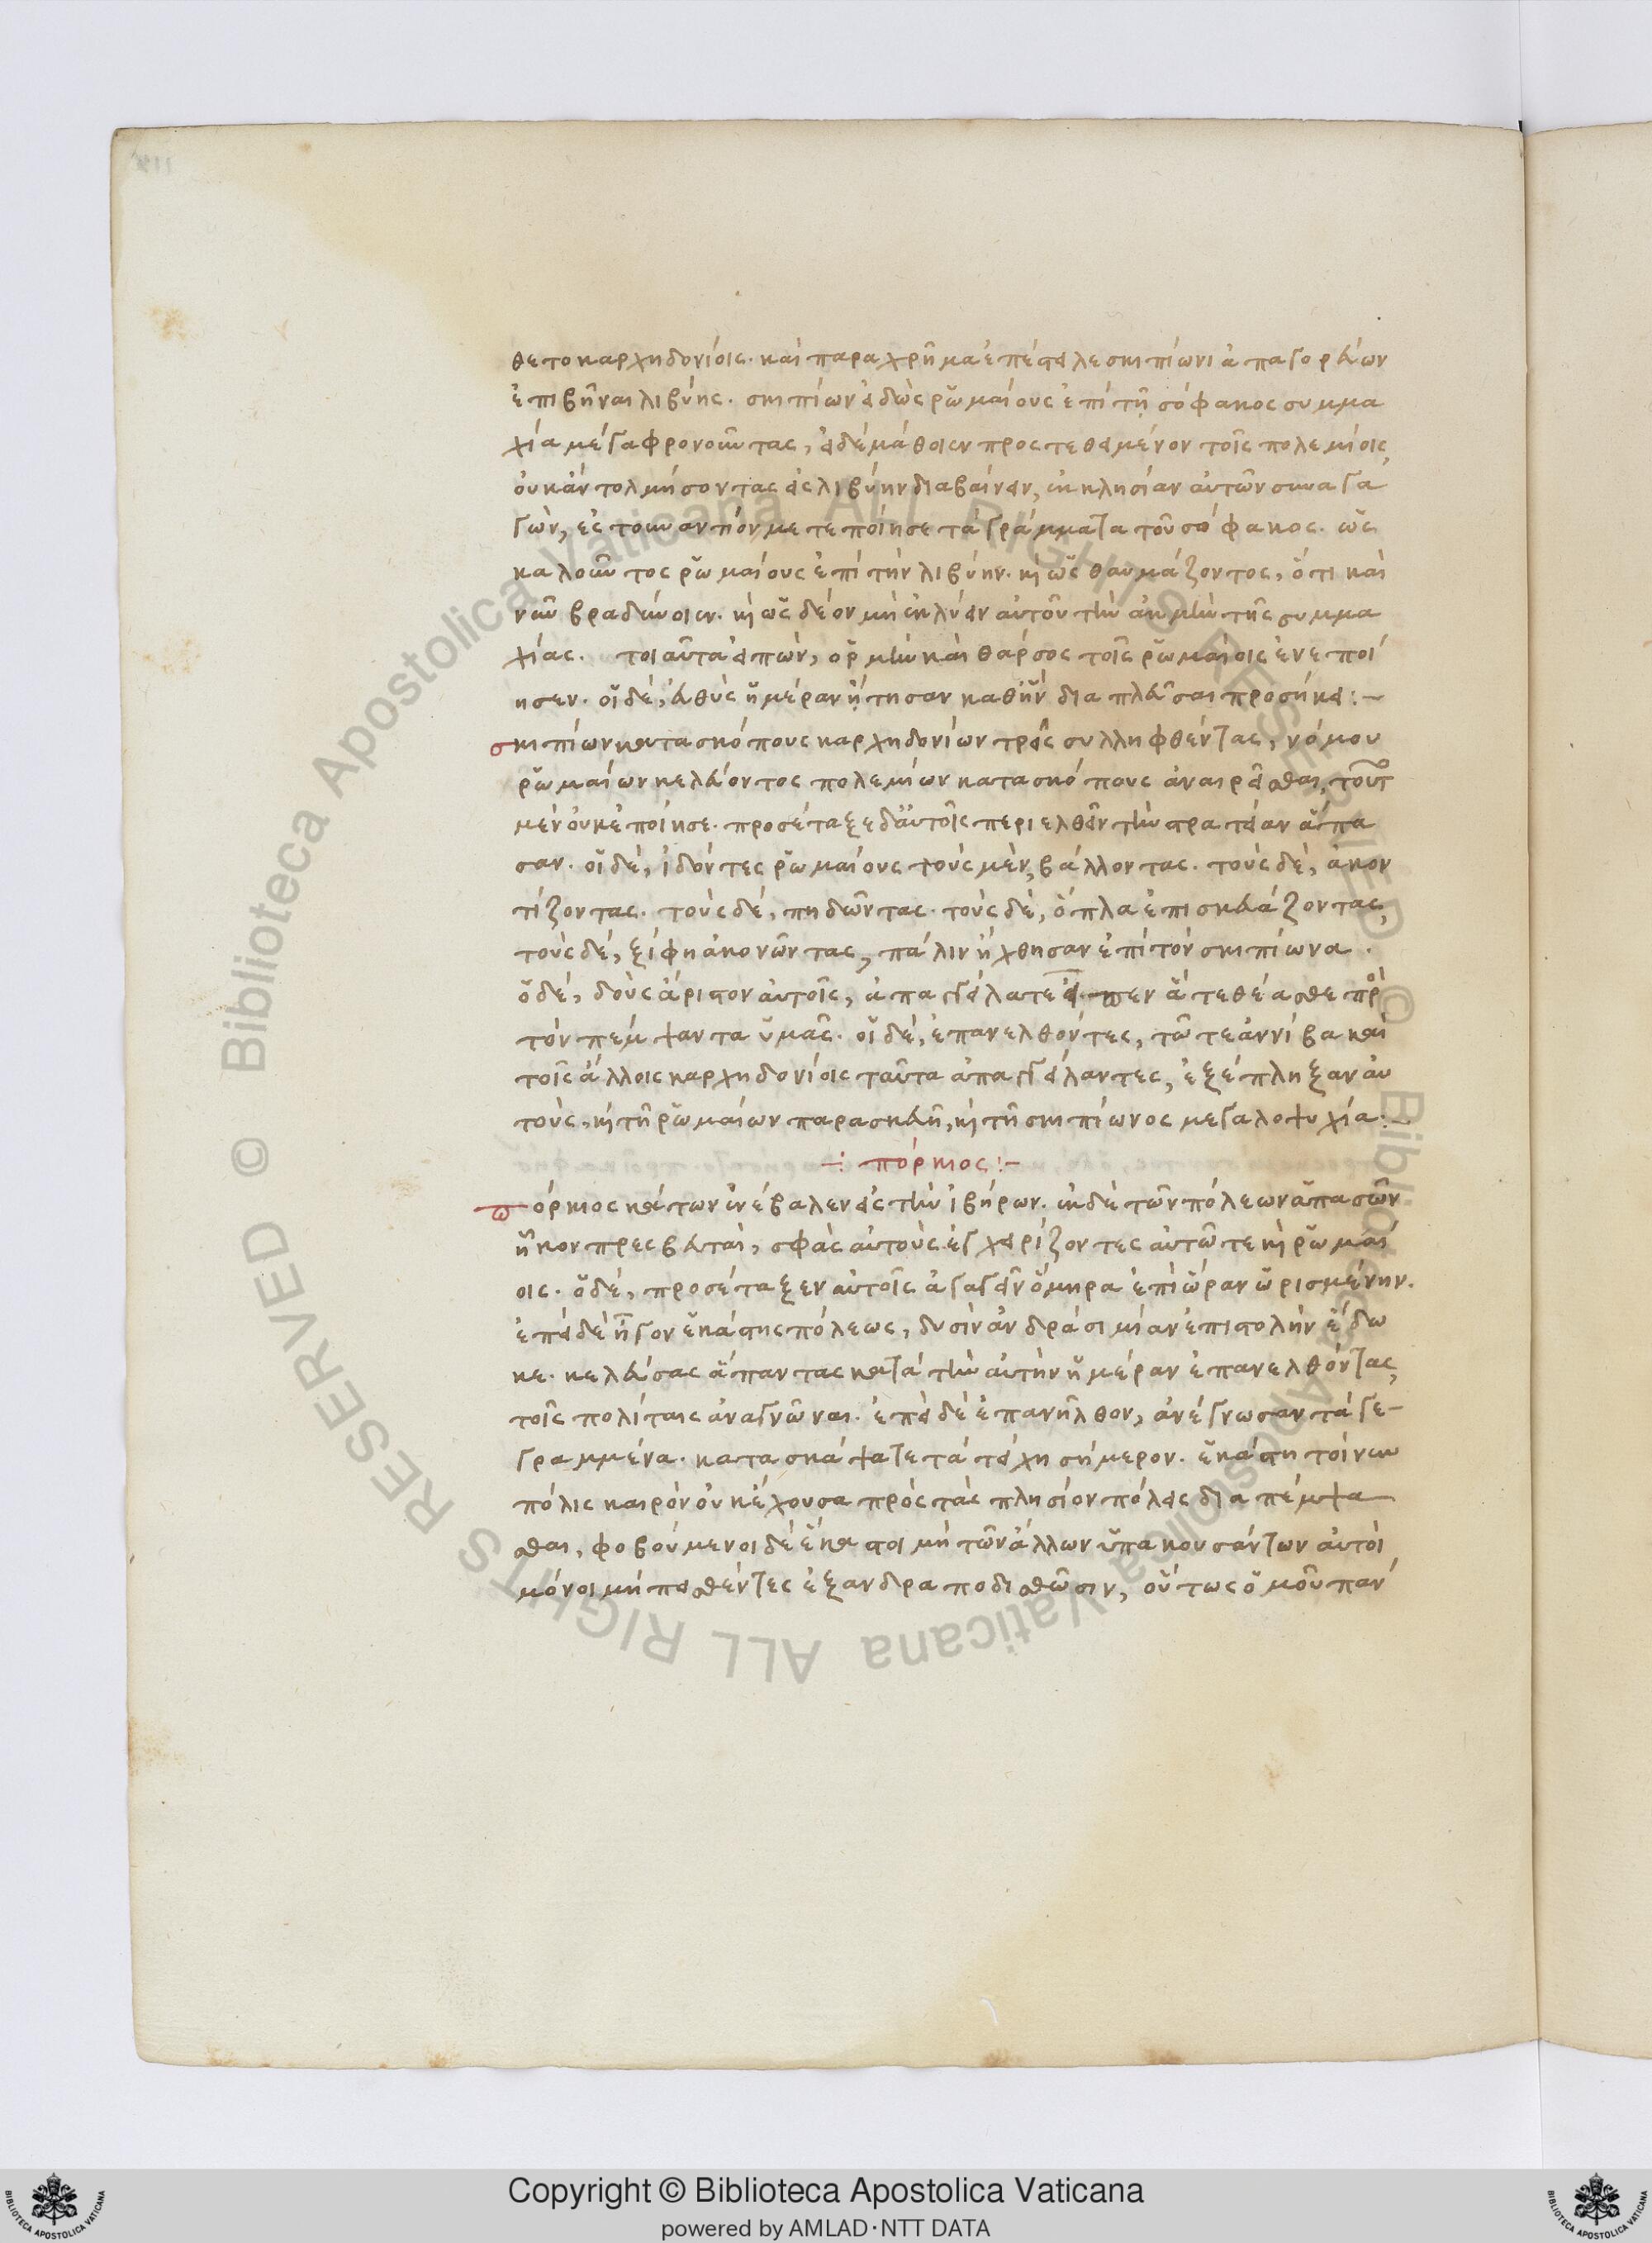 θετο καρχηδονίοις. καὶ παραχρῆμα ἐπέστειλε σκιπίωνι ἀπαγορεύων
ἐπιβῆναι λιβύης. σκιπίων εἰδὼς ῥωμαίους ἐπὶ τῇ σόφακος συμμα
χία μέγα φρονοῦντας, εἰ δὲ μάθοιεν προστεθειμένον τοῖς πολεμίοις,
οὐκ ἂν τολμήσοντας εἰς λιβύην διαβαίνειν, ἐκκλησίαν αὐτῶν συναγα
γὼν, ἐς τοὐναντίον μετεποίησε τὰ γράμματα τοῦ σόφακος. ὡς
καλοῦντος ῥωμαίους ἐπὶ τὴν λιβύην. κὶ ὡς θαυμάζοντος, ὅτι καὶ
νῦν βραδύνοιεν. κὶ ὡς δέον μὴ ἐκλύειν αὐτοῦ τὴν ἀκμὴν τῆς συμμα
χίας. τοιαῦτα εἰπὼν, ὁρμὴν καὶ θάρσος τοῖς ῥωμαίοις ἐνεποί
ησεν. οἱ δὲ, εὐθὺς ἡμέραν ᾔτησαν καθ' ἣν διαπλεῦσαι προσήκει:-
σκιπίων κατασκόπους καρχηδονίων τρεῖς συλληφθέντας, νόμου
ῥωμαίων κελεύοντος πολεμίων κατασκόπους ἀναιρεῖσθαι, τοῦτ
μὲν οὐκ ἐποίησε. προσέταξε δ' αὐτοῖς περιελθεῖν τὴν στρατείαν ἅπα
σαν. οἱ δὲ, ἰδόντες ῥωμαίους τοὺς μὲν, βάλλοντας. τοὺς δὲ, ἀκον
τίζοντας. τοὺς δὲ, πηδῶντας. τοὺς δὲ, ὅπλα ἐπισκευάζοντας,
τοὺς δὲ, ξίφη ἀκονῶντας, πάλιν ἤχθησαν ἐπὶ τὸν σκιπίωνα.
ὁ δὲ, δοὺς ἄριστον αὐτοῖς, ἀπαγγείλατε εἶπεν ἅ τεθέασθε πρὸ
τὸν πέμψαντα ὑμᾶς. οἱ δὲ, ἐπανελθόντες, τῶ τε ἀννίβα καὶ
τοῖς ἄλλοις καρχηδονίοις ταῦτα ἀπαγγείλαντες, ἐξέπληξαν αὐ
τοὺς, κὶ τῆ ῥωμαίων παρασκευῆ, κὶ τῆ σκιπίωνος μεγαλοψυχία:-
-: πόρκιος:-
πόρκιος κάτων ἐνέβαλεν εἰς τὴν ἰβήρων. ἐκ δὲ τῶν πόλεων ἁπασῶν
ἧκον πρεσβευταὶ, σφᾶς αὐτοὺς ἐγχειρίζοντες αὐτῶ τε κὶ ῥωμαί
οις. ὁ δὲ, προσέταξεν αὐτοῖς ἀγαγεῖν ὅμηρα ἐπὶ ὥραν ὡρισμένην.
ἐπεὶ δὲ ἦγον ἑκάστης πόλεως, δυσὶν ἀνδράσι μίαν ἐπιστολὴν ἔδω
κε. κελεύσας ἅπαντας κατὰ τὴν αὐτὴν ἡμέραν ἐπανελθόντας,
τοῖς πολίταις ἀναγνῶναι. ἐπεὶ δὲ ἐπανῆλθον, ἀνέγνωσαν τὰ γε-
γραμμένα. κατασκάψατε τὰ τείχη σήμερον. ἑκάστη τοίνυν
πόλις καιρὸν οὐκ ἔχουσα πρὸς τὰς πλησίον πόλεις διαπέμψα
σθαι, φοβούμενοι δὲ ἕκαστοι μὴ τῶν ἄλλων ὑπακουσάντων αὐτοὶ
μόνοι μὴ πεισθέντες ἐξανδραποδισθῶσιν, οὕτως ὁμοῦ παν